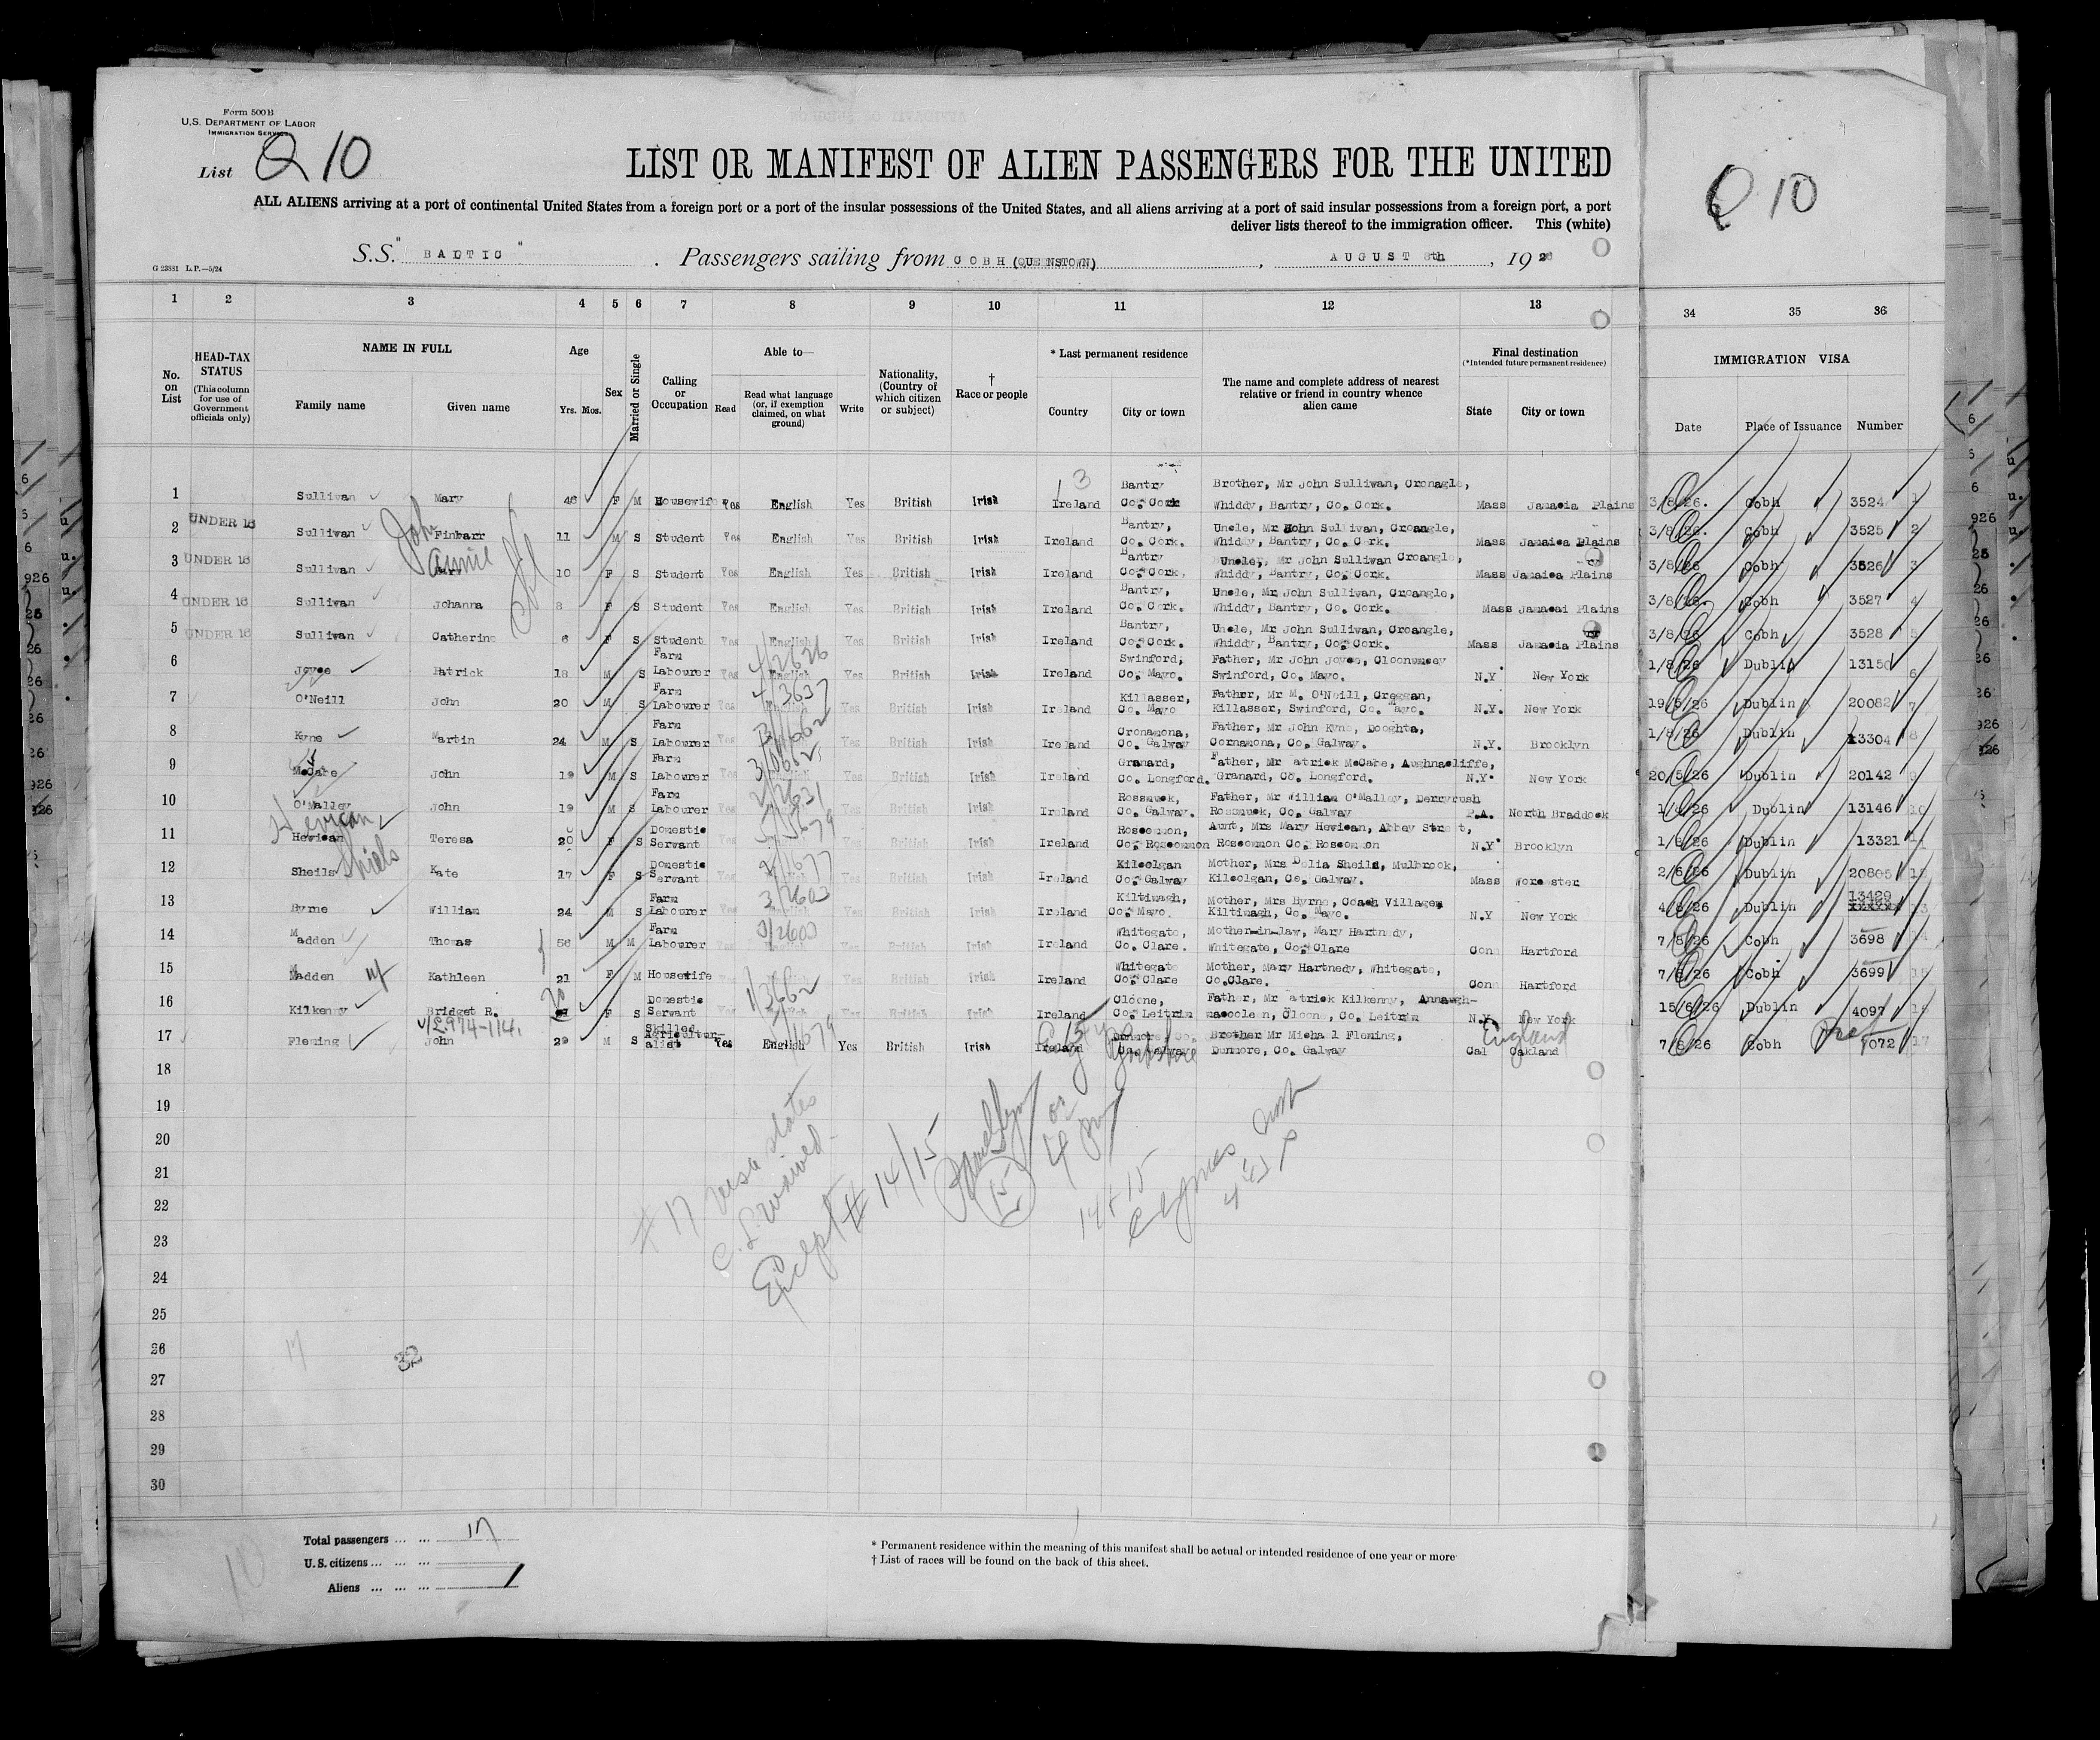 Form 500B
U.S. DEPARTMENT OF LABOR
IMMIGRATION SERVICE
List Q 10
Q 10
LIST OR MANIFEST OF ALIEN PASSENGERS FOR THE UNITED
ALL ALIENS arriving at a port of continental United States from a foreign port or a port of the insular possessions of the United States, and all aliens arriving at a port of said insular possessions from a foreign port, a port
deliver lists thereof to the immigration officer. This (white)
G 23881 L.P.—5/24
S.S. "BALTIC". Passengers sailing from COBH (QUEENSTOWN), AUGUST 8th, 1926
1 2 3 4 5 6 7 8 9 10 11 12 13 34 35 36
No. on List
HEAD-TAX STATUS (This column for use of Government officials only)
NAME IN FULL Family name Given name
Age Yrs. Mos.
Sex
Married or Single
Calling or Occupation
Able to— Read Read what language (or, if exemption claimed, on what ground) Write
Nationality, (Country of which citizen or subject)
† Race or people
* Last permanent residence Country City or town
The name and complete address of nearest relative or friend in country whence alien came
Final destination (*Intended future permanent residence) State City or town
IMMIGRATION VISA Date Place of Issuance Number
1 Sullivan Mary 46 F M Housewife Yes English Yes British Irish Ireland Bantry Co. Cork Brother, Mr John Sullivan, Cronagle, Whiddy, Bantry, Co. Cork. Mass Jamacia Plains 3/8/26. Cobh 3524 1
2 UNDER 16 Sullivan John Finbarr 11 M S Student Yes English Yes British Irish Ireland Bantry, Co. Cork. Uncle, Mr John Sullivan, Croangle, Whiddy, Bantry, Co. Cork. Mass Jamaica Plains 3/8/26. Cobh 3525 2
3 UNDER 16 Sullivan Annie 10 F S Student Yes English Yes British Irish Ireland Bantry Co. Cork. Uncle, Mr John Sullivan Croangle, Whiddy, Bantry, Co. Cork. Mass Jamaica Plains 3/8/26 Cobh 3526 3
4 UNDER 16 Sullivan Johanna 8 F S Student Yes English Yes British Irish Ireland Bantry, Co. Cork. Uncle, Mr John Sullivan, Croangle, Whiddy, Bantry, Co. Cork. Mass Jamacai Plains 3/8/26. Cobh 3527 4
5 UNDER 16 Sullivan Catherine 6 F S Student Yes English Yes British Irish Ireland Bantry, Co. Cork. Uncle, Mr John Sullivan, Croangle, Whiddy, Bantry, Co. Cork. Mass Jamacia Plains 3/8/26 Cobh 3528 5
6 Joyce Patrick 18 M S Farm Labourer Yes English Yes British Irish Ireland Swinford, Co. Mayo. Father, Mr John Joyce, Cloonumcey Swinford, Co. Mayo. N.Y New York 1/8/26 Dublin 13150 6
7 O'Neill John 20 M S Farm Labourer Yes English Yes British Irish Ireland Killasser, Co. Mayo Father, Mr M. O'Neill, Creggan, Killasser, Swinford, Co. Mayo. N.Y. New York 19/5/26 Dublin 20082 7
8 Kyne Martin 24 M S Farm Labourer Yes Yes British Irish Ireland Cronamona, Co. Galway Father, Mr John Kyne, Dooghta, Cornamona, Co. Galway. N.Y. Brooklyn 1/8/26 Dublin 13304 8
9 McCabe John 19 M S Farm Labourer Yes Yes British Irish Ireland Granard, Co. Longford. Father, Mr atrick McCabe, Aughnacliffe, Granard, Co. Longford. N.Y. New York 20/5/26 Dublin 20142 9
10 O'Malley John 19 M S Farm Labourer Yes Yes British Irish Ireland Rossmuck, Co. Galway. Father, Mr William O'Malley, Derryrush Rossmuck, Co. Galway P.A. North Braddock 1/8/26 Dublin 13146 10
11 Hevican Hevican Teresa 20 F S Domestic Servant Yes Yes British Irish Ireland Roscommon, Co. Roscommon Aunt, Mrs Mary Hevican, Abbey Stre t, Roscommon Co. Roscommon N.Y Brooklyn 1/8/26 Dublin 13321 11
12 Sheils Shiels Kate 17 F S Domestic Servant Yes Yes British Irish Ireland Kilcolgan Co. Galway Mother, Mrs Delia Sheils, Mulbrook, Kilcolgan, Co. Galway. Mass Worcester 2/6/26 Dublin 20805 12
13 Byrne William 24 M S Farm Labourer Yes English Yes British Irish Ireland Kiltimagh, Co. Mayo. Mother, Mrs Byrne, Coach Village, Kiltimagh, Co. Mayo. N.Y New York 4/8/26 Dublin 13429 13
14 Madden Thomas 56 M M Farm Labourer Yes English Yes British Irish Ireland Whitegate, Co. Clare. Mother-in-law, Mary Hartnedy, Whitegate, Co. Clare Conn Hartford 7/8/26 Cobh 3698 14
15 Madden Kathleen 21 F M Housewife Yes Yes British Irish Ireland Whitegate Co. Clare Mother, Mary Hartnedy, Whitegate, Co. Clare. Conn Hartford 7/8/26 Cobh 3699 15
16 Kilkenny Bridget R. F S Domestic Servant Yes Yes British Irish Ireland Cloone, Co. Leitrim Father, Mr atrick Kilkenny, Annaugh-macoleen, Cloone, Co. Leitrim N.Y. New York 15/6/26 Dublin 4097 16
17 Fleming John 29 M S Skilled Agricultur-alist Yes English Yes British Irish Ireland Dunmore, Co. Galway Brother Mr Michael Fleming, Dunmore, Co. Galway Cal Oakland England 7/8/26 Cobh 1072 17
18
19
20
21
22
23
24
25
26
27
28
29
30
# 17 visa states
C. L. waived.
Except # 14/15
15
14 & 15
17
32
10
Total passengers ... ... 17
U.S. citizens ... ... ...
Aliens ... ... ...
* Permanent residence within the meaning of this manifest shall be actual or intended residence of one year or more
† List of races will be found on the back of this sheet.